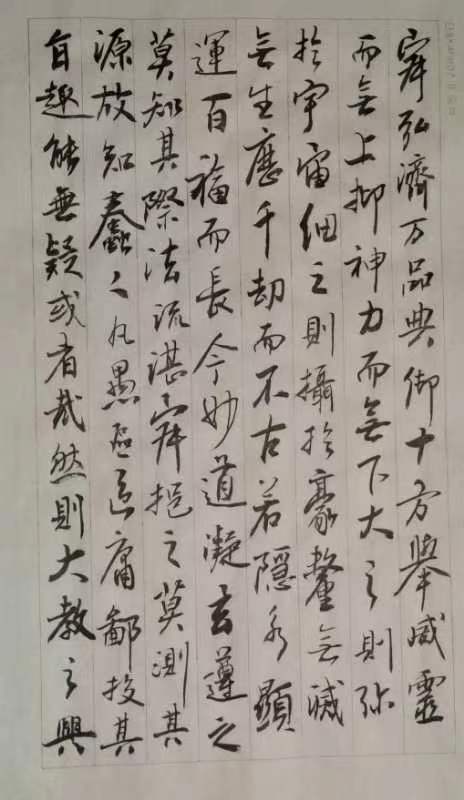 寂弘濟万品典御十方舉威靈
而無上抑神力而無下大之則弥
於宇宙细之則攝於豪釐無滅
無生應千劫而不古若隱若顯
運百福而長今妙道凝玄遵之
莫知其際法流湛寂挹之莫測其
源故知蠢々凡愚區區庸鄙投其
旨趣能無疑或者哉然則大教之興